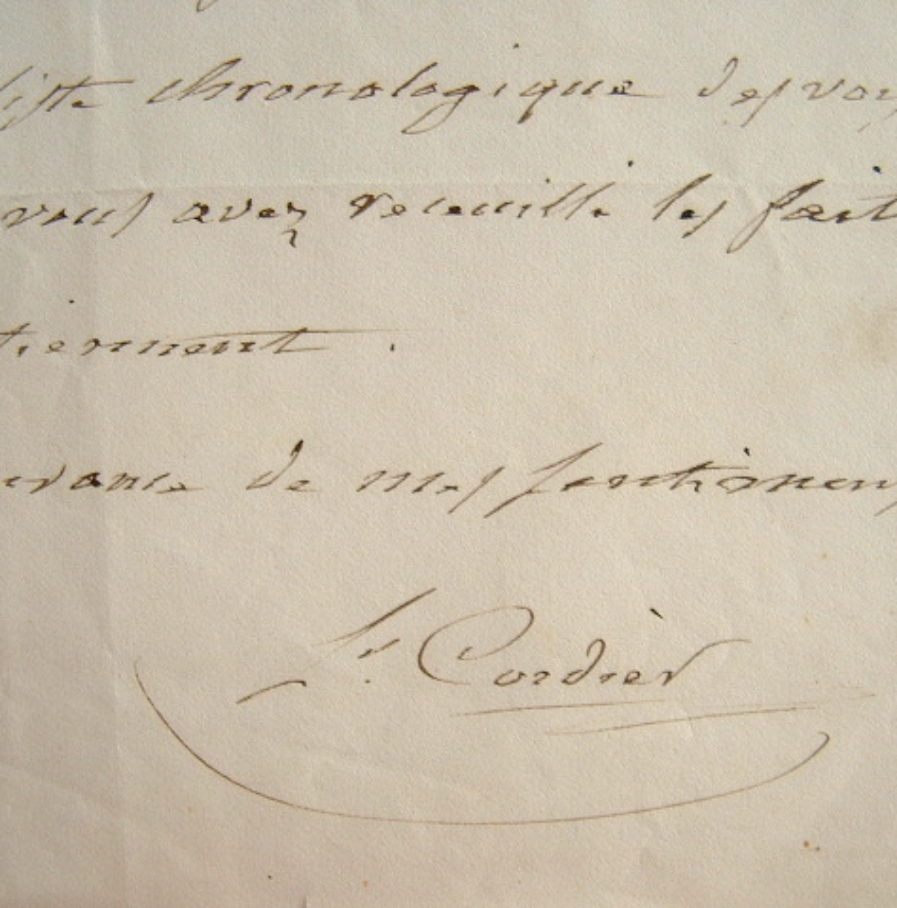 liste chronologique des voy
vous avez recueilli les fait
tiennent.
urance de mes sentimens
Lr. Cordier